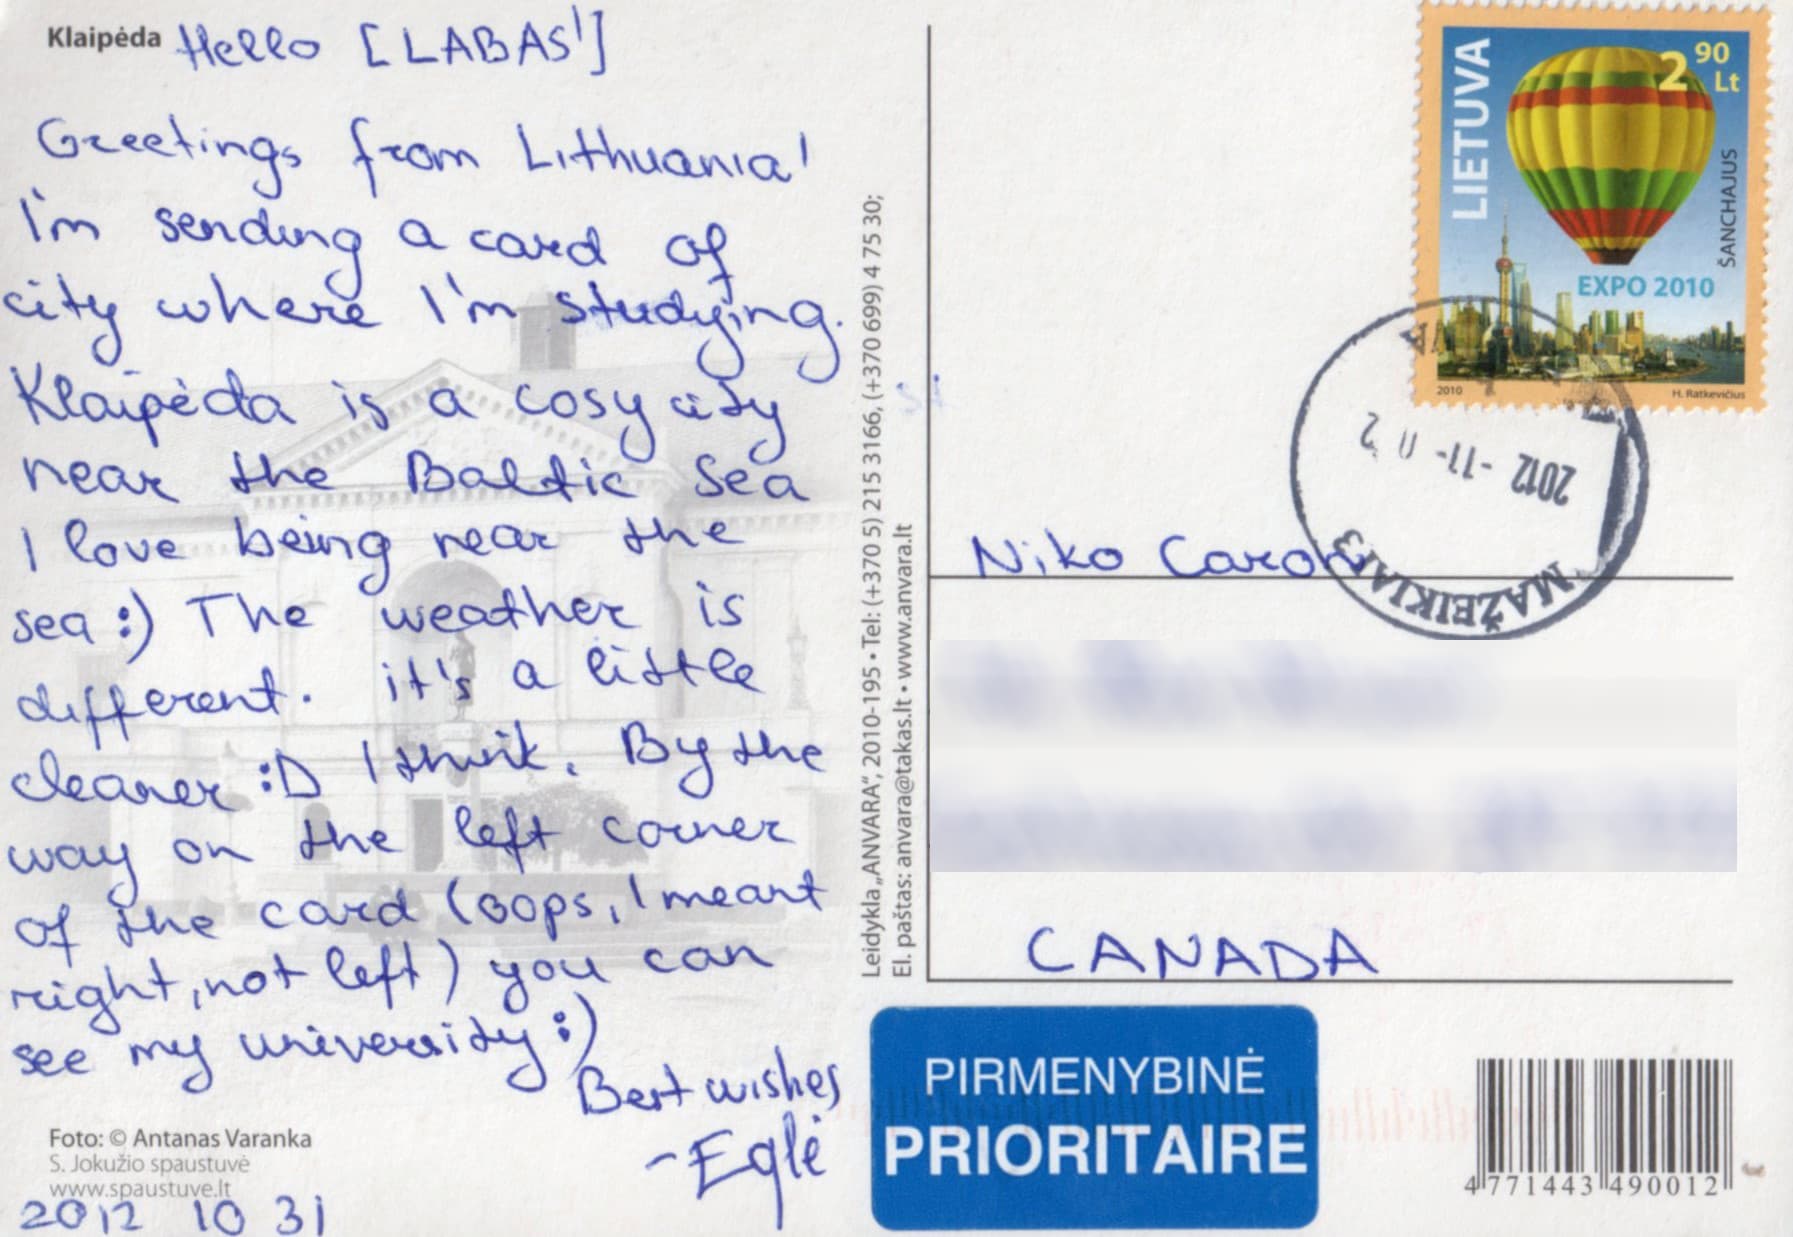 Klaipėda Hello [LABAS!]
Greetings from Lithuania!
I'm sending a card of
city where I'm studying.
Klaipėda is a cosy city
near the Baltic sea
I love being near the
sea :) The weather is
different. it's a little
cleaner :D I think. By the
way on the left corner
of the card (oops, I meant
right, not left) you can
see my university :)
Best wishes
- Eglė
Foto: © Antanas Varanka
S. Jokužio spaustuvė
www.spaustuve.lt
2012 10 31
Leidykla „ANVARA“, 2010-195 • Tel: (+370 5) 215 3166, (+370 699) 4 75 30;
El. paštas: anvara@takas.lt • www.anvara.lt
LIETUVA
2 90 Lt
ŠANCHAJUS
EXPO 2010
2010 H. Ratkevičius
2012 -11- 02
MAŽEIKIAI 3
Niko Caron
CANADA
PIRMENYBINĖ
PRIORITAIRE
4 771443 490012